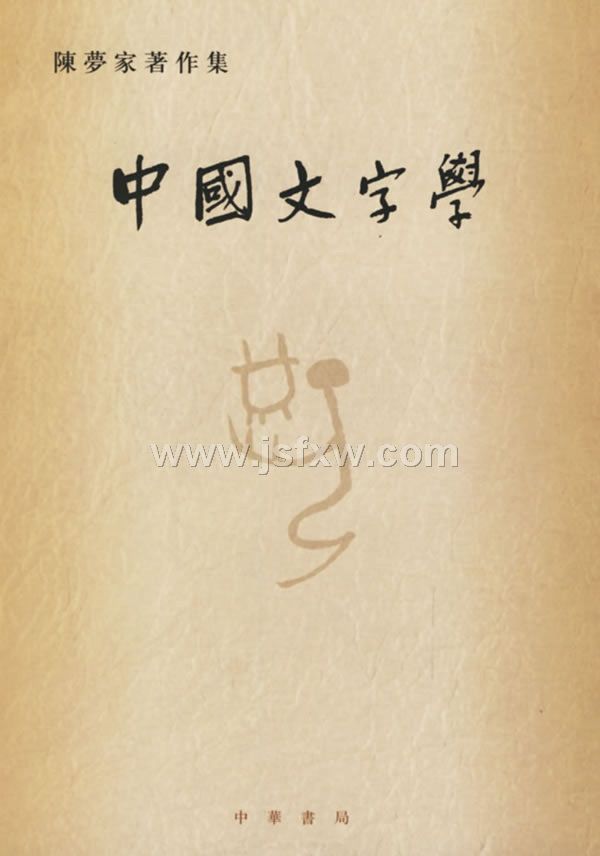 陳夢家著作集
中國文字學
www.jsfxw.com
中華書局